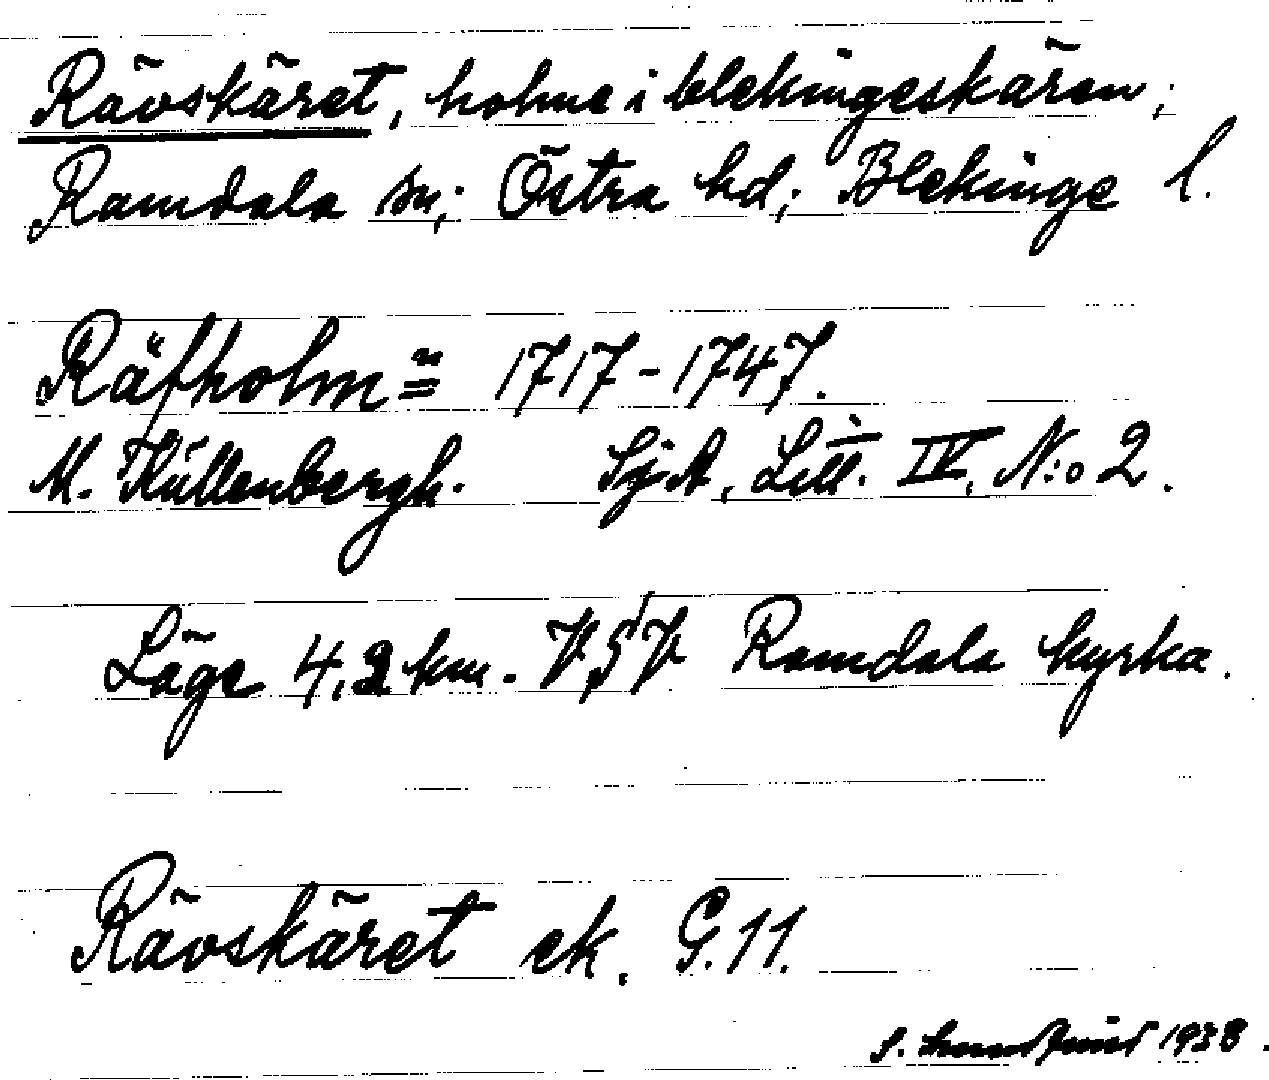 Rävskäret, holme i blekingeskären;
Ramdala sn; Östra hd; Blekinge l.
Räfholm = 1717-1747.
M. Küllenbergh. Sj.A, Litt. IV, N:o 2.
Läge 4,2 km. VSV Ramdala kyrka.
Rävskäret ek. G.11.
S. 1938.